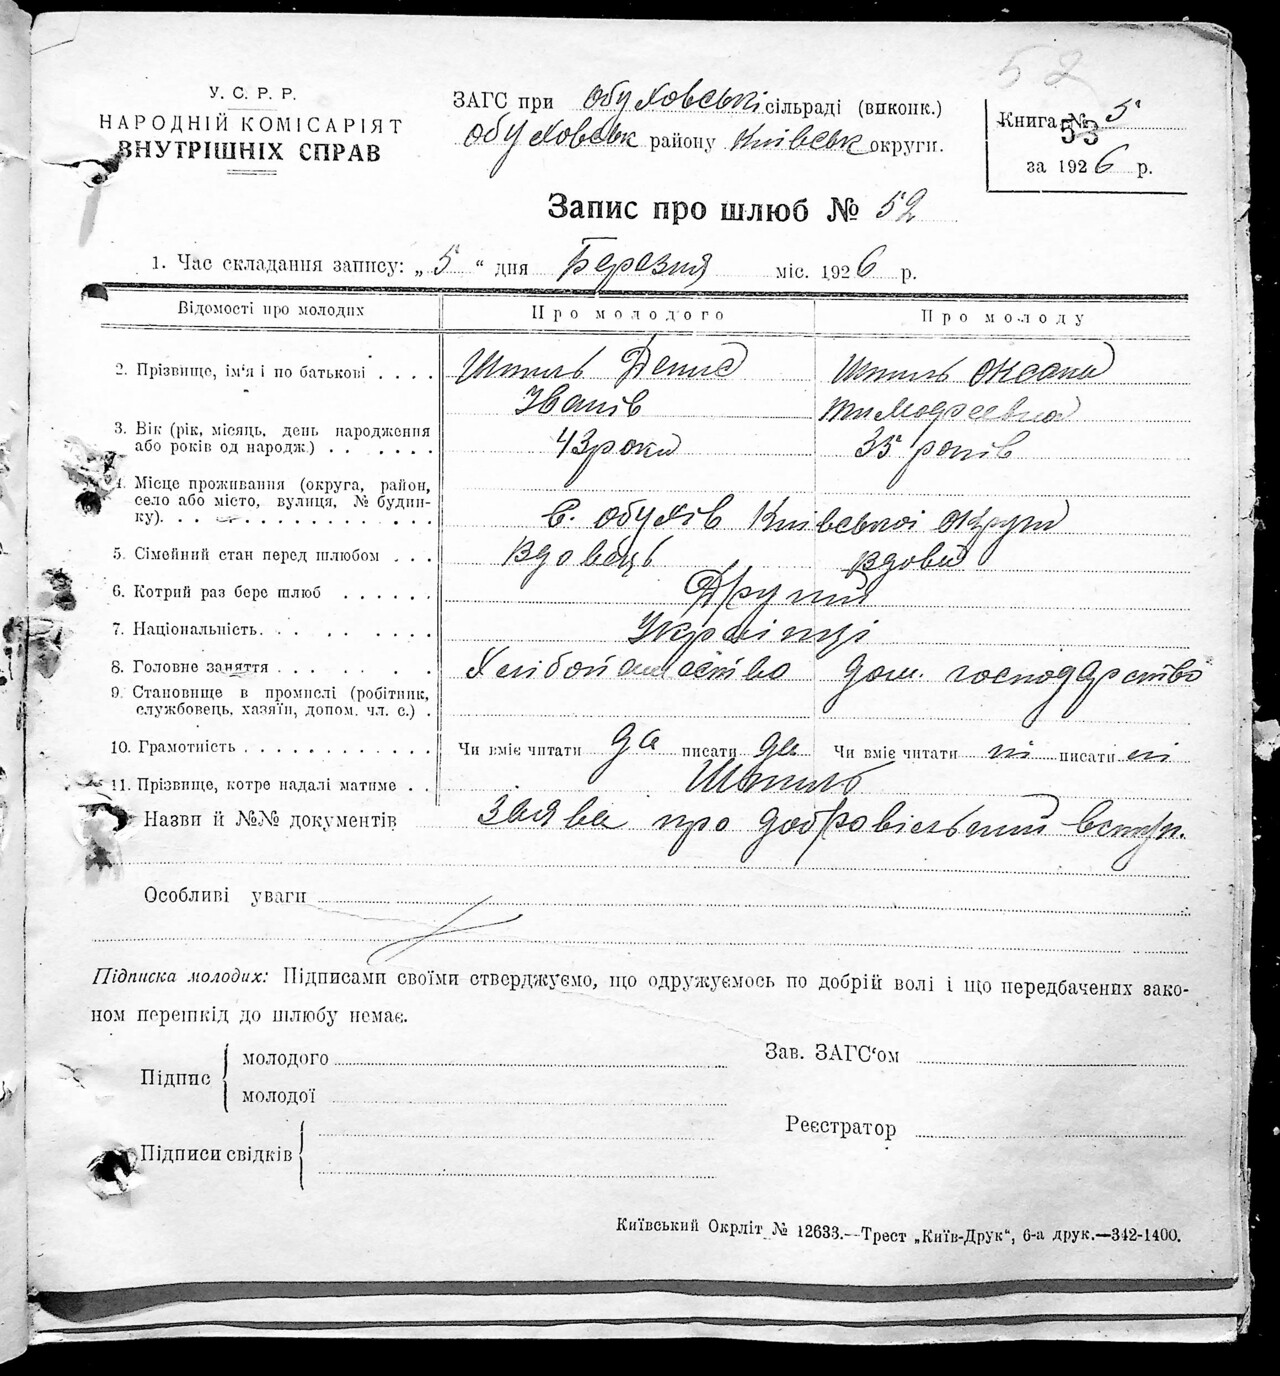 52
У. С. Р. Р.
НАРОДНІЙ КОМІСАРІЯТ
ВНУТРІШНІХ СПРАВ
ЗАГС при Обуховські сільраді (виконк.)
Обуховськ району Київськ округи.
Книга № 5
53
за 1926 р.
Запис про шлюб № 52
1. Час складання запису: „ 5 “ дня Березня міс. 1926 р.
Відомості про молодих Про молодого Про молоду
2. Прізвище, ім'я і по батькові . . . . Денис Оксана
Іванів Тимофеевна
3. Вік (рік, місяць, день народження
або років од народж.) . . . . . . 43 роки 35 років
4. Місце проживання (округа, район,
село або місто, вулиця, № будин-
ку). . . . . . . . . . . . . . с. Обухів Київської округи
5. Сімейний стан перед шлюбом . . . Вдовець Вдова
6. Котрий раз бере шлюб . . . . . . Другий
7. Національність. . . . . . . . . . Українці
8. Головне заняття . . . . . . . . . Хлібопашество дом. господарство
9. Становище в промислі (робітник,
службовець, хазяїн, допом. чл. с.) .
10. Грамотність . . . . . . . . . . . Чи вміє читати да писати да Чи вміє читати ні писати ні
11. Прізвище, котре надалі матиме . .
Назви й №№ документів Заява про добровільний вступ.
Особливі уваги
Підписка молодих: Підписами своїми стверджуємо, що одружуємось по добрій волі і що передбачених зако-
ном перешкід до шлюбу немає.
Підпис { молодого
молодої
Зав. ЗАГС'ом
Реєстратор
Підписи свідків {
Київський Окрліт № 12633.—Трест „Київ-Друк“, 6-а друк.—342-1400.